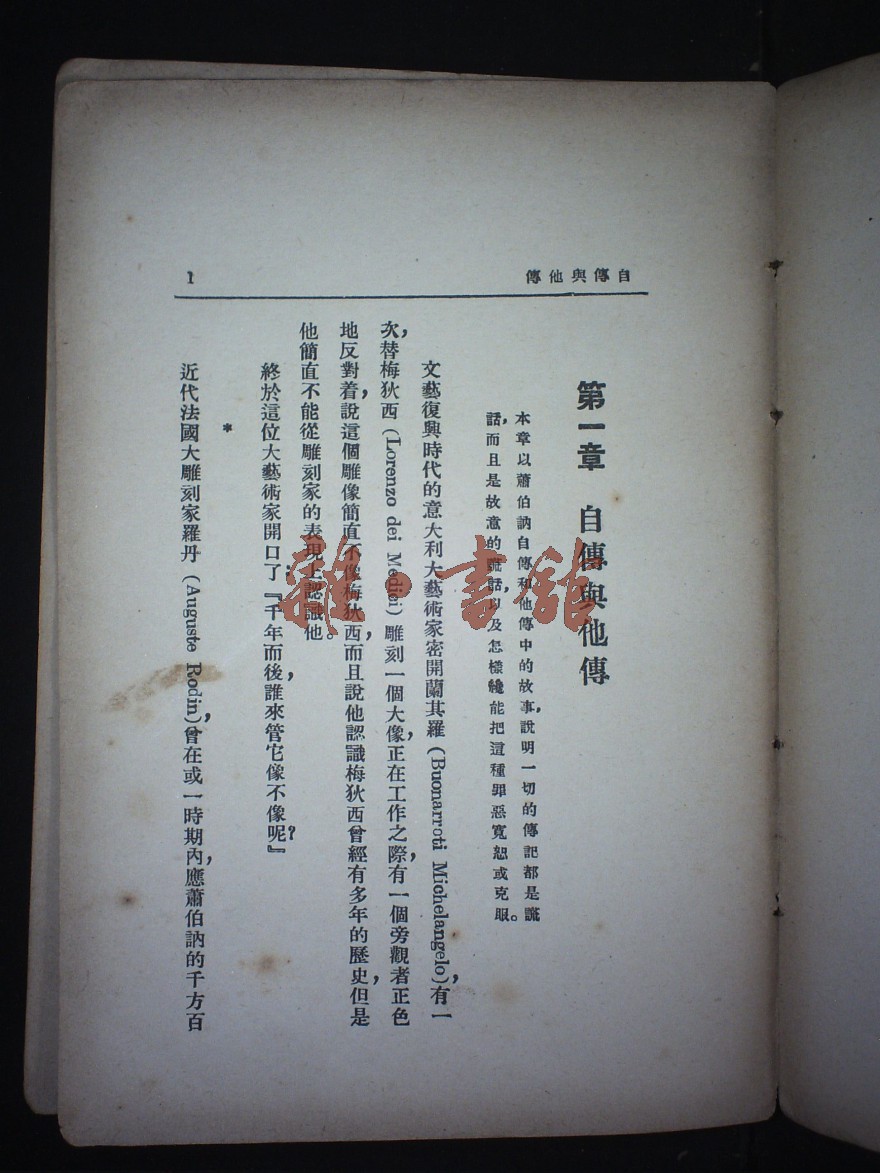 自傳與他傳
1
第一章 自傳與他傳
本章以蕭伯訥自傳和他傳中的故事，說明一切的傳記都是謊
話，而且是故意的謊話，以及怎樣纔能把這種罪惡寬恕或克服。
文藝復興時代的意大利大藝術家密開蘭其羅(Buonarroti Michelangelo)，有一
次，替梅狄西(Lorenzo dei Medici)雕刻一個大像，正在工作之際，有一個旁觀者正色
地反對着，說這個雕像簡直不像梅狄西，而且說他認識梅狄西曾經有多年的歷史，但是
他簡直不能從雕刻家的表現上認識他。
終於這位大藝術家開口了：『千年而後，誰來管它像不像呢？』
*
近代法國大雕刻家羅丹(Auguste Rodin)，曾在或一時期內，應蕭伯訥的千方百
雜·書館